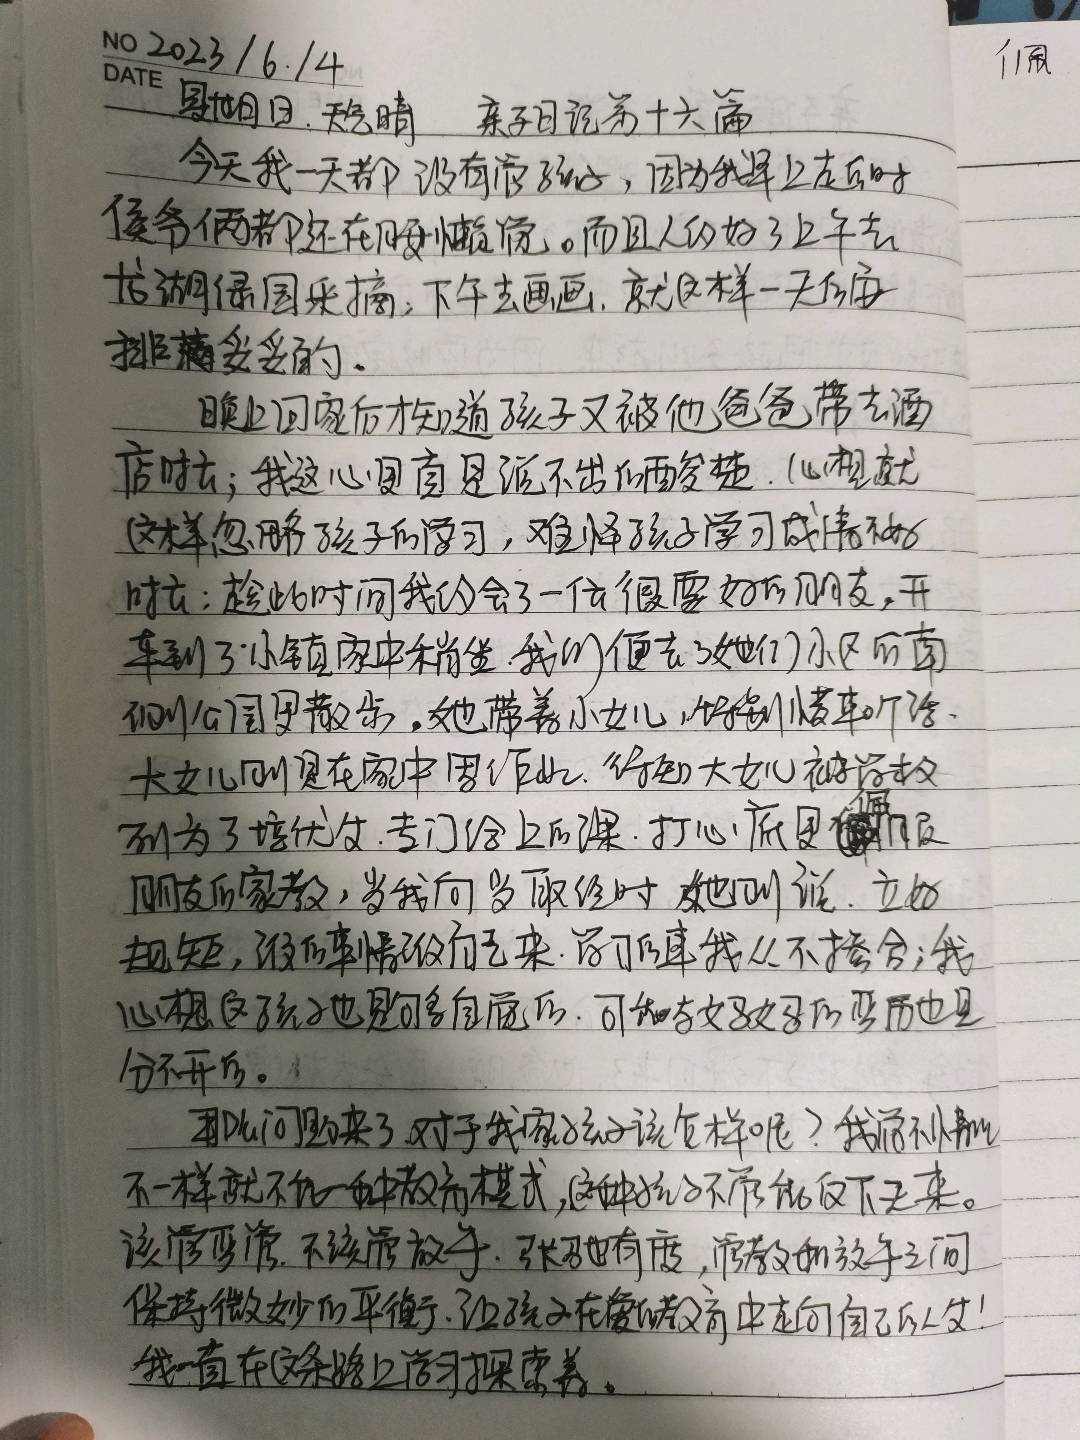 NO 2023/6./4
佩
DATE
星期日. 天气晴 亲子日记第十六篇
今天我一天都没有管孩子，因为我早上走的时
候爷俩都还在睡懒觉。而且人约好了上午去
龙湖绿园采摘；下午去画画. 就这样一天的安
排满妥妥的.
晚上回家后才知道孩子又被他爸爸带去酒
店时; 我这心里真是说不出的酸楚. 心想就
这样忽略孩子的学习, 难怪孩子学习成绩不好
时; 趁此时间我约会了一位很要好的朋友, 开
车到了小镇家中稍坐. 我们便去了她们小区的南
侧公园里散步。她带着小女儿,
大女儿则是在家中写作业. 得知大女儿被学校
列为了培优生. 专门给上的课. 打心底里佩服
朋友的家教, 当我问当取经时 她则说. 立好
规矩, 做的事情做自己来. 学习的事我从不掺合; 我
心想这孩子也是够自觉的. 可能与妈妈的要求也是
分不开的。
那么问题来了. 对于我家孩子该怎样呢? 我觉不情况
不一样就不能一种教育模式, 这种孩子不管能
该管要管. 不该管放手. 张弛有度, 管教和放手之间
保持微妙的平衡. 让孩子在爱的教育中走向自己的人生!
我一直在这条路上学习探索着。